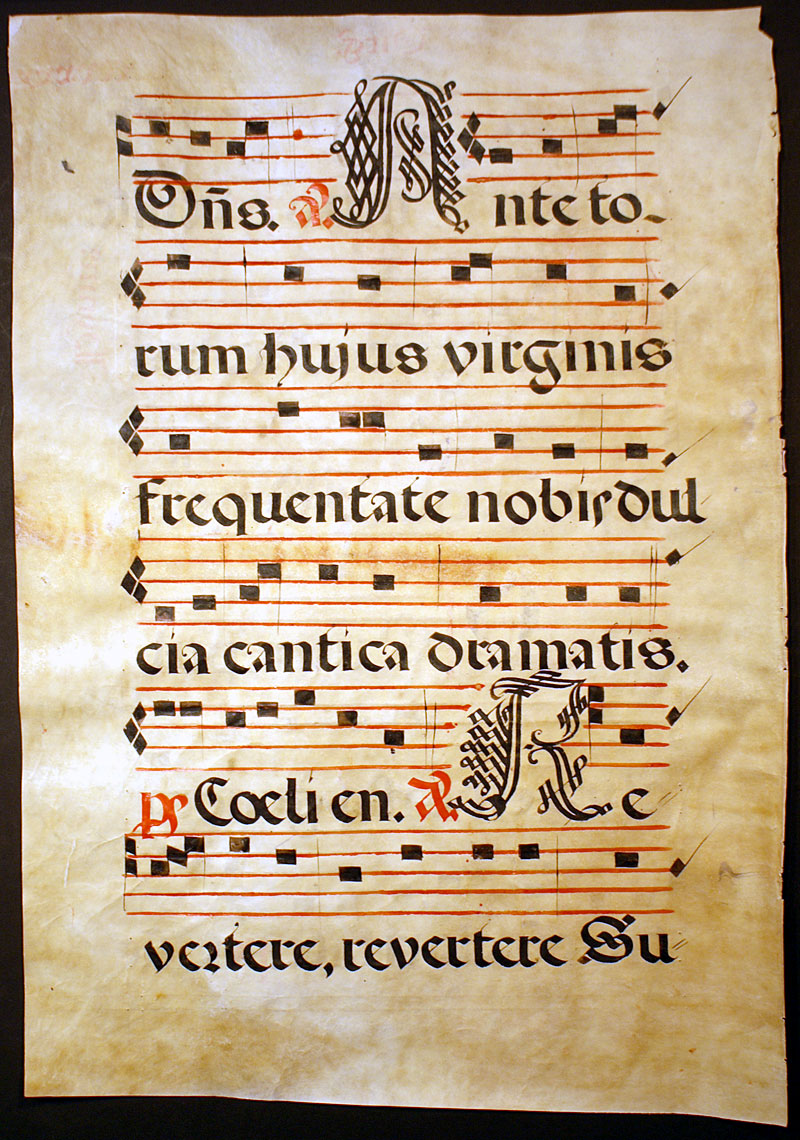 Dñs. A. Ante to-
rum hujus virginis
frequentate nobis dul
cia cantica dramatis.
ps Coeli en. A. Re
vertere, revertere Su